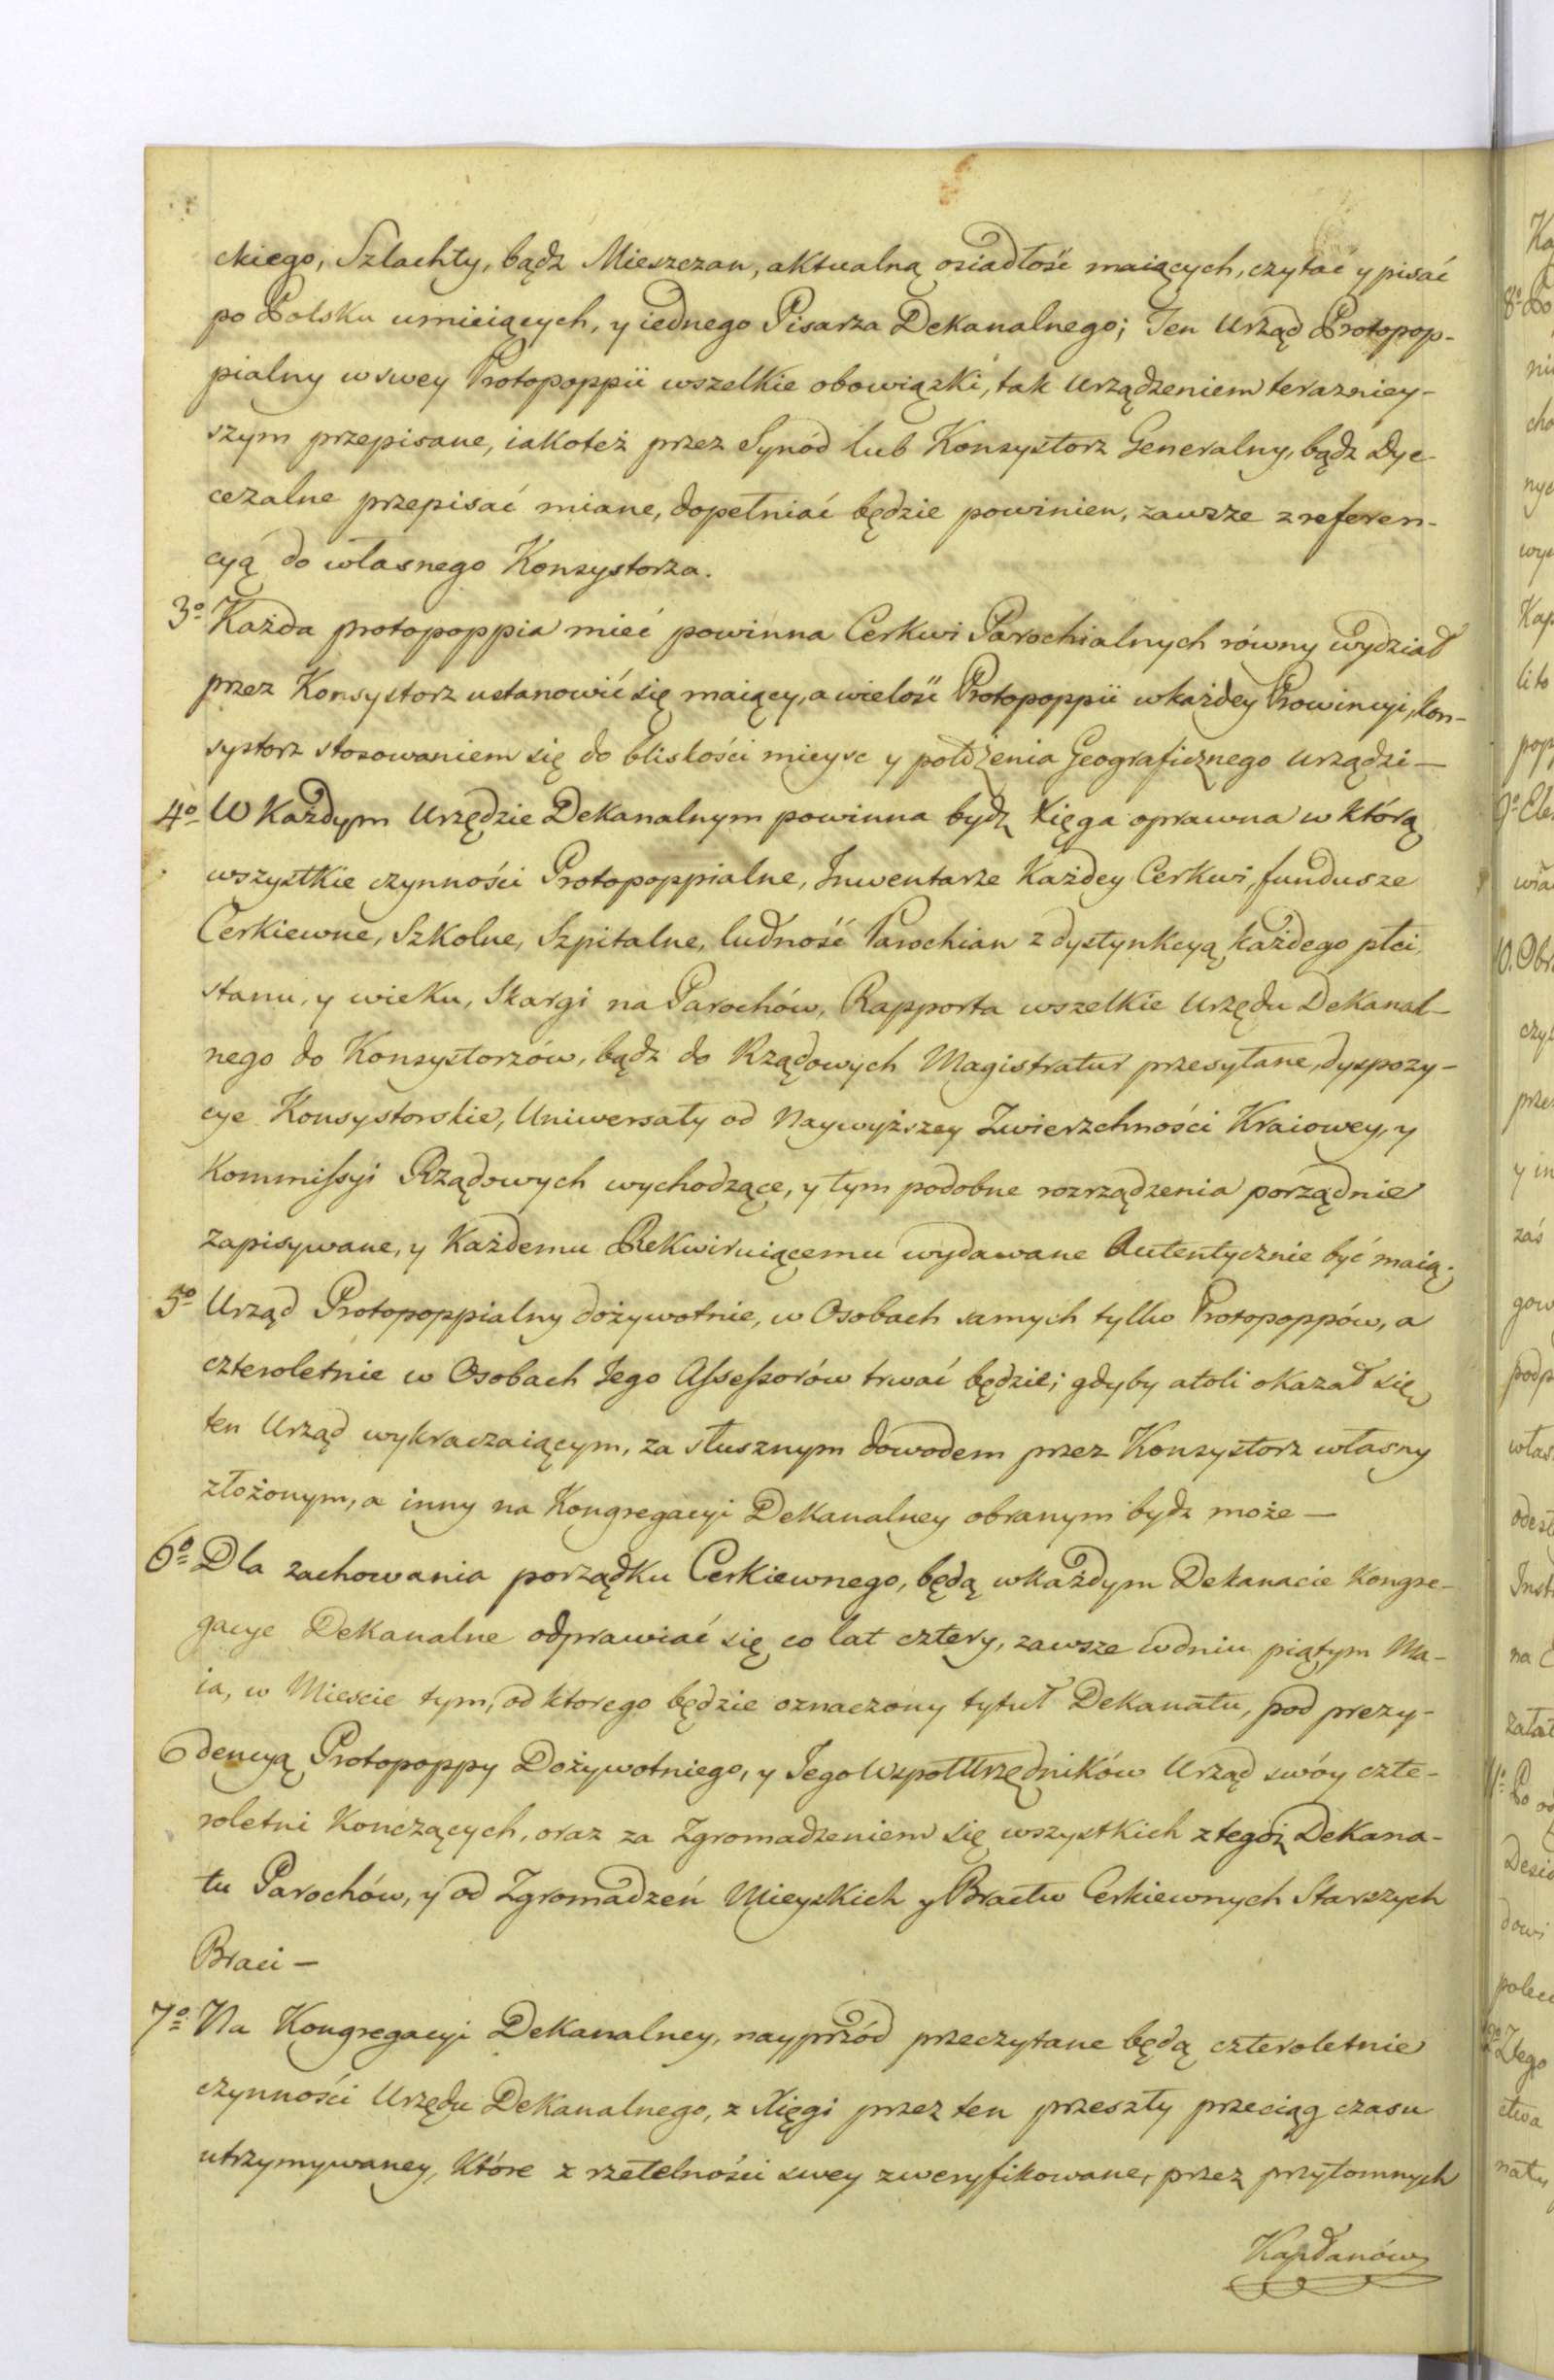 ckiego, Szlachty, bądz Mieszczan, aktualną osiadłość maiących, czytać y pisać
po Polsku umieiących, y iednego Pisarza Dekanalnego; Ten Urząd Protopop-
pialny w swey Protopoppii wszelkie obowiązki, tak Urządzeniem terazniey-
szym przepisane, iakoteż przez Synód lub Konsystorz Generalny, bądz Dye-
cezalne przepisać miane, dopełniać będzie powinien, zawsze z referen-
cyą do własnego Konsystorza.
3º Każda protopoppia mieć powinna Cerkwi Parochialnych równy wydział
przez Konsystorz ustanowić się maiący, a wielość Protopoppii w każdey Prowincyi, Kon-
systorz stosowaniem się do bliskości mieysc y położenia Geograficznego urządzi —
4º W Każdym Urzędzie Dekanalnym powinna bydz Xięga oprawna w którą
wszystkie czynności Protopoppialne, Inwentarze Każdey Cerkwi, fundusze
Cerkiewne, Szkolne, Szpitalne, ludność Parochian z dystynkcyą każdego płci,
stanu, y wieku, Skargi na Parochów, Rapporta wszelkie Urzędu Dekanal-
nego do Konsystorzów, bądz do Rządowych Magistratur przesyłane, dyspozy-
cye Konsystorskie, Uniwersały od Naywyższey Zwierzchności Kraiowey, y
Kommissyi Rządowych wychodzące, y tym podobne rozrządzenia porządnie
zapisywane, y Każdemu Rekwiruiącemu wydawane Autentycznie być maią.
5º Urząd Protopoppialny dożywotnie, w Osobach samych tylko Protopoppów, a
czteroletnie w Osobach Iego Assessorów trwać będzie; gdyby atoli okazał się
ten Urząd wykraczaiącym, za słusznym dowodem przez Konsystorz własny
złożonym, a inny na Kongregacyi Dekanalney obranym bydz może —
6º Dla zachowania porządku Cerkiewnego, będą w każdym Dekanacie Kongre-
gacye Dekanalne odprawiać się co lat cztery, zawsze w dniu piątym Ma-
ia, w Miescie tym, od ktorego będzie oznaczony tytuł Dekanatu, pod prezy-
dencyą Protopoppy Dożywotniego, y Iego WspołUrzędników Urząd swóy czte-
roletni Konczących, oraz za Zgromadzeniem się wszystkich z tegoż Dekana-
tu Parochów, y od Zgromadzeń Mieyskich y Bractw Cerkiewnych Starszych
Braci —
7º Na Kongregacyi Dekanalney, nayprzód przeczytane będą czteroletnie
czynności Urzędu Dekanalnego, z Xięgi przez ten przeszły przeciąg czasu
utrzymywaney, Które z rzetelności swey zweryfikowane, przez przytomnych
Kapłanów